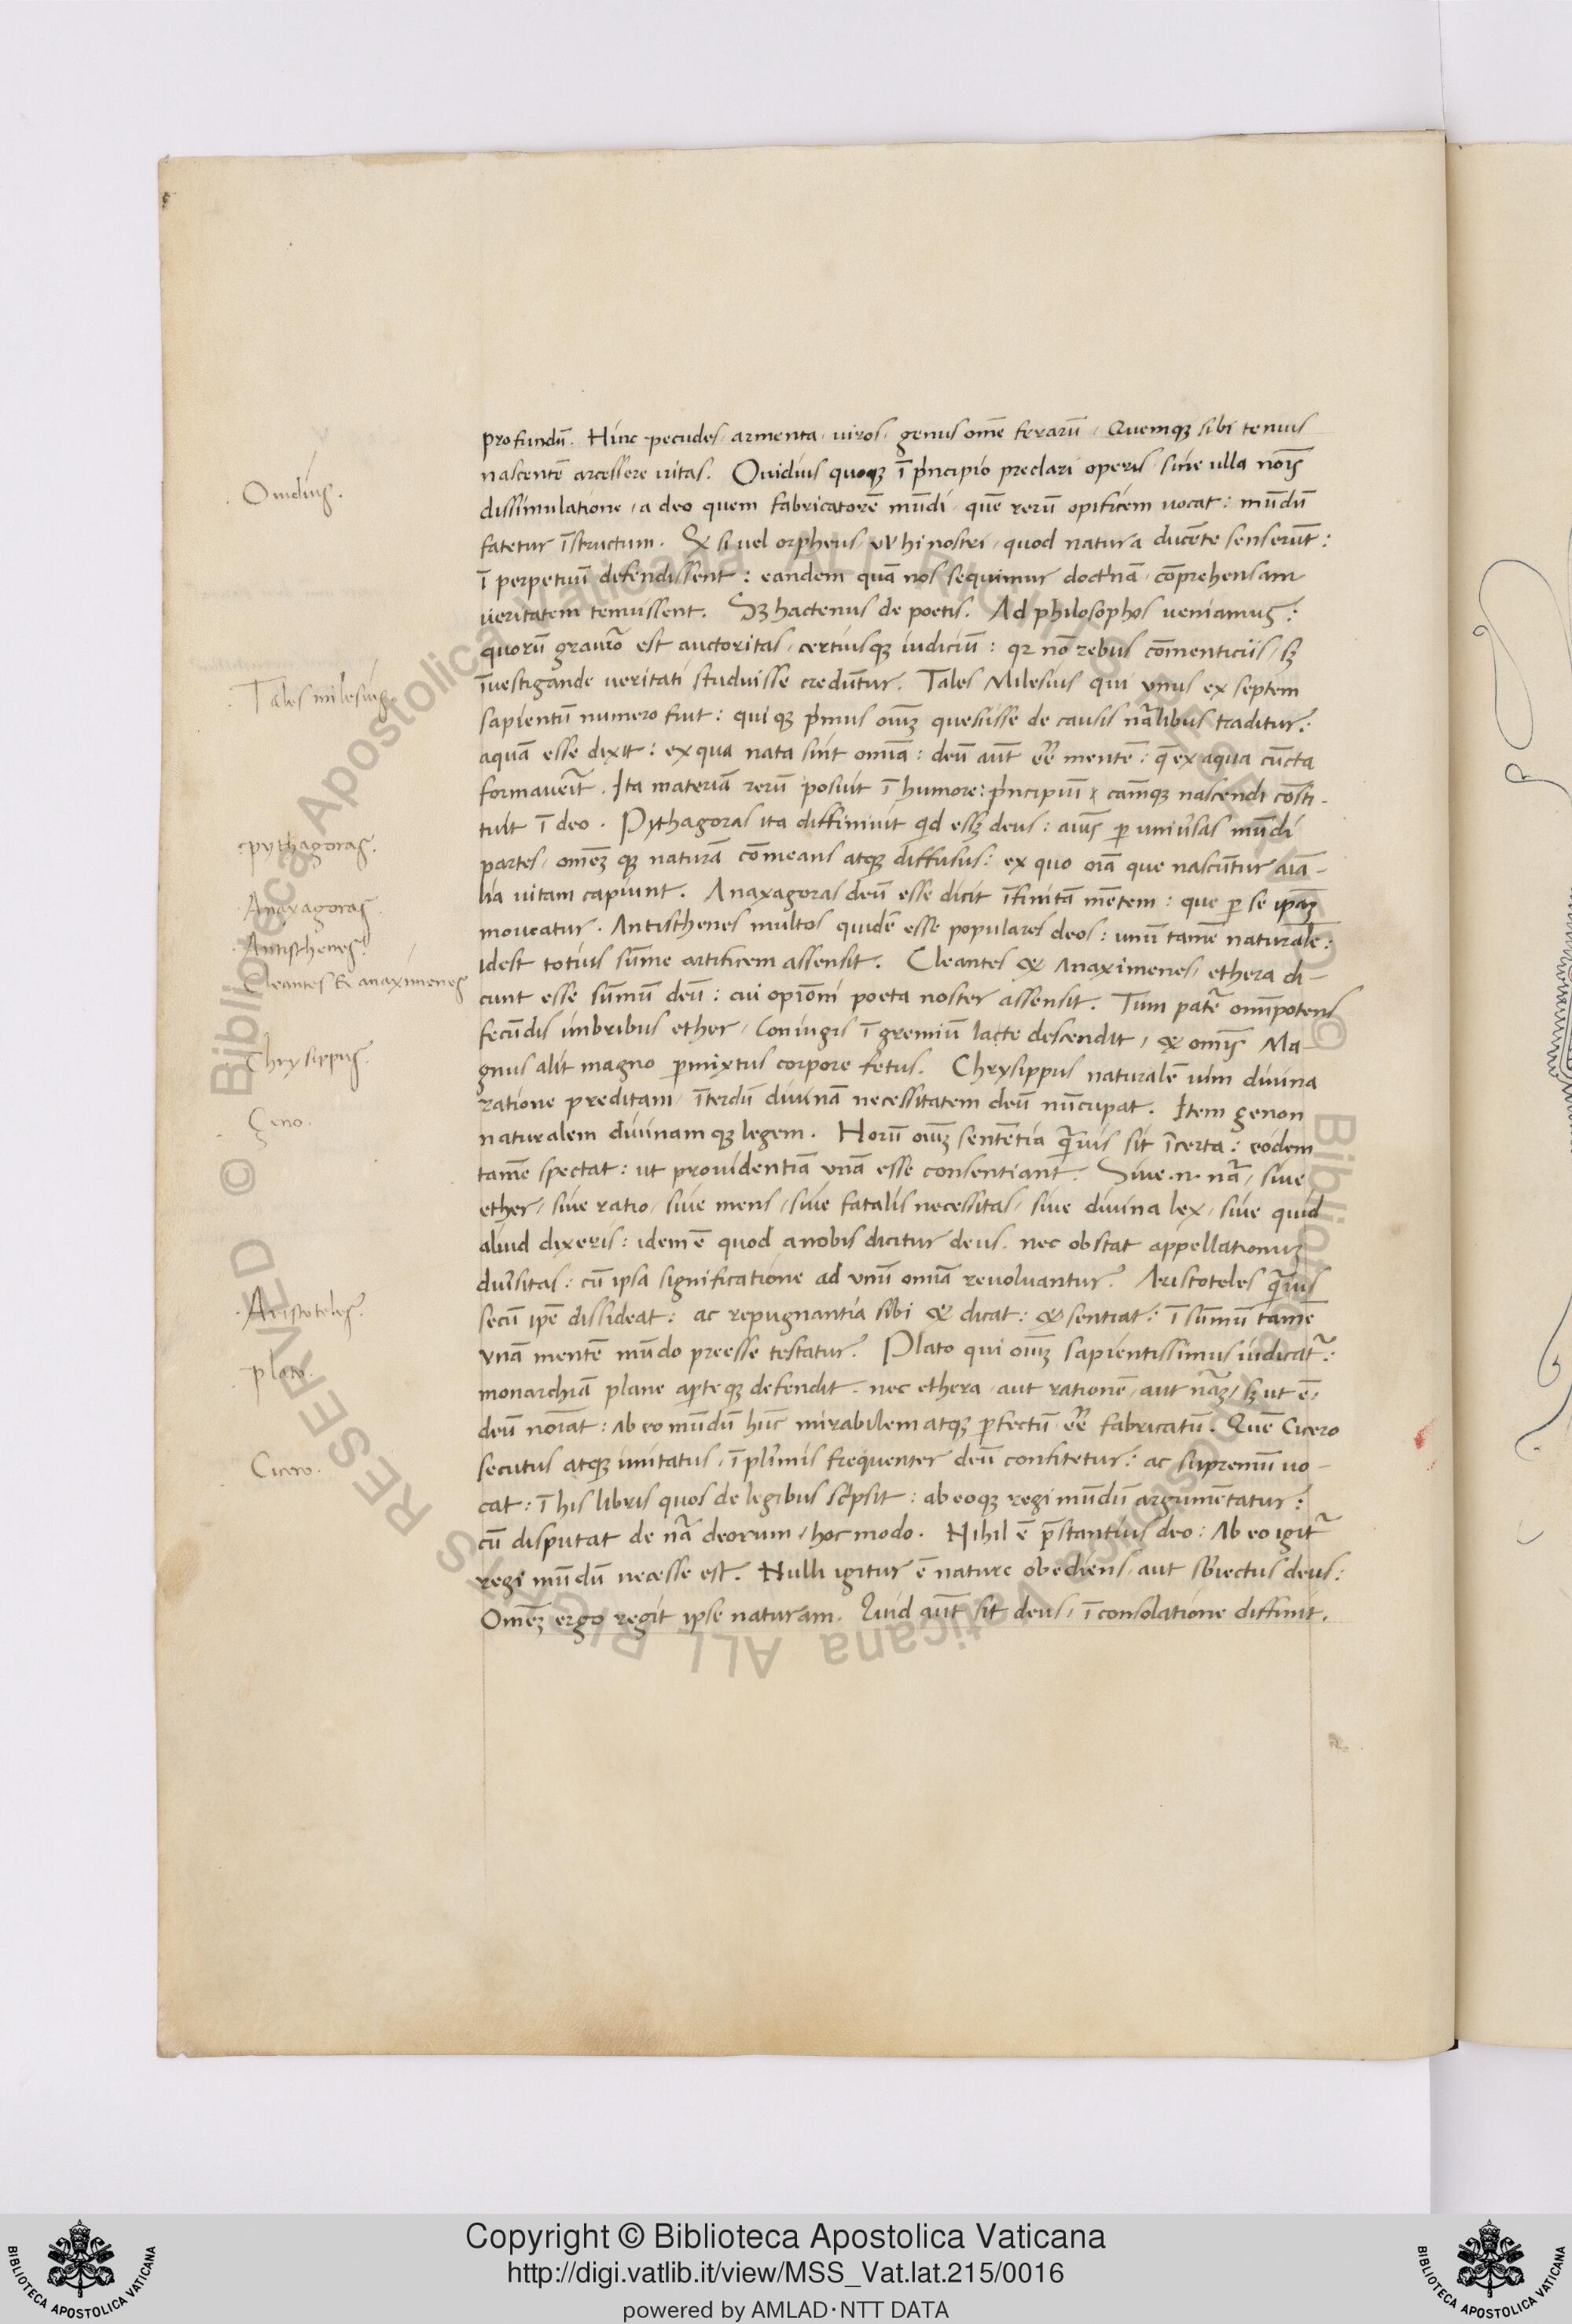 profundū. Hinc pecudes, armenta, uiros, genus omē ferarū, Quemqꝫ sibi tenuis
nascentē arcessere uitas. Ouidius quoqꝫ ī prīncipio preclari operis, sine ulla noīs
Ouidius.
dissimulatione, a deo quem fabricatorē mūdi, quē rerū opificem uocat: mūdū
fatetur īstructum. & si uel orpheus, ul hi nostri, quod natura ducēte senserūt:
ī perpetuū defendissent: eandem quā nos sequimur doctnā, cōprehensam
ueritatem tenuissent. Sꝫ hactenus de poetis. Ad philosophos ueniamus:
quorū grauior est auctoritas, certiusqꝫ iudiciū: qr nō rebus cōmenticiis, sꝫ
Tales milesius
īuestigande ueritati studuisse credūtur. Tales Milesius qui unus ex septem
sapientū numero fuit: qui qꝫ pmus oiuꝫ quesiisse de causis nālibus traditur:
aquā esse dixit: ex qua nata sint omīa: deū aūt eē mentē: q̄ ex aqua cūcta
formauerit. Ita materiā rerū posuit ī humore: pncipiū & cāmqꝫ nascendi cōsti-
tuit ī deo. Pythagoras ita diffiniuit qd essꝫ deus: aius p uniūsas mūdi
pythagoras.
partes, omēꝫ qꝫ naturā cōmeans atqꝫ diffusus: ex quo oīa que nascūtur aīa-
lia uitam capiunt. Anaxagoras deū esse dicit īfinitā mētem: que p se ipaꝫ
Anaxagoras.
moueatur. Antisthenes multos quidē esse populares deos: unū tamē naturalē:
Antisthenes.
idest totius sūme artificem assensit. Cleantes & Anaximenes, ethera di-
Cleantes & anaximenes
cunt esse sūmū deū: cui opīoni poeta noster assensit. Tum patē omīpotens
fecūdis imbribus ether, Coniugis ī gremiū lacte descendit, & omīs Ma-
Chrysippus.
gnus alit magno pmixtus corpore fetus. Chrysippus naturalē uim diuina
ratione preditam, īterdū diuinā necessitatem deū nūcupat. Item zenon
Zeno.
naturalem diuinam qꝫ legem. Horū oiuꝫ sententia q̄uis sit īcerta: eodem
tamē spectat: ut prouidentiā unā esse consentiant. Siue .n. nā, siue
ether, siue ratio, siue mens, siue fatalis necessitas, siue diuina lex, siue quid
aliud dixeris: idem ē quod a nobis dicitur deus. nec obstat appellationuꝫ
duūsitas: cū ipsa significatione ad unū omīa reuoluantur. Aristoteles q̄uis
Aristoteles.
secū ipē dissideat: ac repugnantia sibi & dicat: & sentiat: ī sūmū tamē
unā mentē mūdo preesse testatur. Plato qui oiuꝫ sapientissimus iudicat:
plato.
monarchiā plane apte qꝫ defendit. nec ethera, aut rationē, aut nāꝫ, sꝫ ut ē,
deū noīat: ab eo mūdū hūc mirabilem atqꝫ pfectū eē fabricatū. Quē Cicero
secutus atqꝫ imitatus, ī plimis frequenter deū confitetur: ac supremū uo-
Cicero.
cat: ī his libris quos de legibus scpsit: ab eoqꝫ regi mūdū argumētatur:
cū disputat de nā deorum, hoc modo. Nihil ē pstantius deo: Ab eo igitr
regi mūdū necesse est. Nulli igitur ē nature obediens, aut sbiectus deus:
Omēꝫ ergo regit ipse naturam. Quid aūt sit deus, ī consolatione diffinit.
© Biblioteca Apostolica Vaticana ALL RIGHTS RESERVED
Copyright © Biblioteca Apostolica Vaticana
http://digi.vatlib.it/view/MSS_Vat.lat.215/0016
powered by AMLAD·NTT DATA
BIBLIOTECA APOSTOLICA VATICANA
BIBLIOTECA APOSTOLICA VATICANA